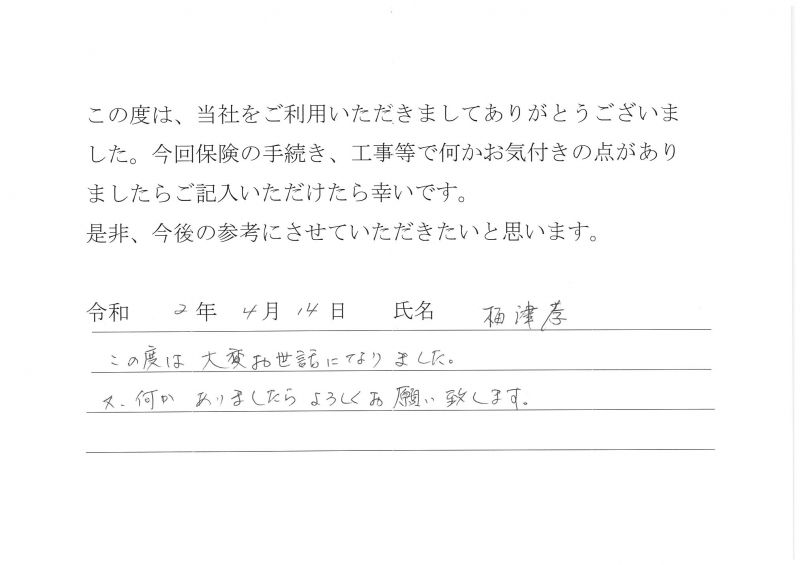 この度は、当社をご利用いただきましてありがとうございま
した。今回保険の手続き、工事等で何かお気付きの点があり
ましたらご記入いただけたら幸いです。
是非、今後の参考にさせていただきたいと思います。
令和 2年 4月 14日 氏名 梅津孝
この度は大変お世話になりました。
又、何かありましたらよろしくお願い致します。